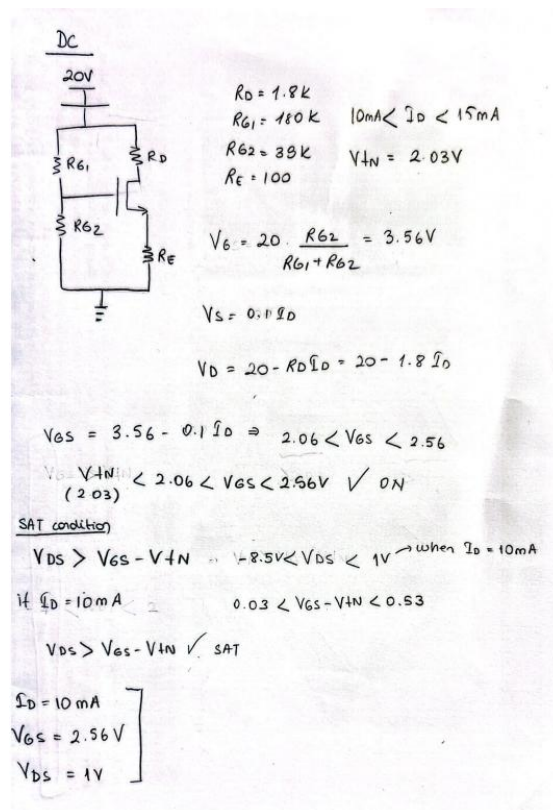 DC
20V
RG1
RD
RG2
RE
RD = 1.8K
RG1 = 180K
RG2 = 39K
RE = 100
10mA < ID < 15mA
VtN = 2.03V
VG = 20 . RG2 / RG1 + RG2 = 3.56V
VS = 0.1 ID
VD = 20 - RD ID = 20 - 1.8 ID
VGS = 3.56 - 0.1 ID ⇒ 2.06 < VGS < 2.56
VtN (2.03) < 2.06 < VGS < 2.56V ✓ ON
SAT condition
VDS > VGS - VtN -8.5V < VDS < 1V → when ID = 10mA
if ID = 10mA 0.03 < VGS - VtN < 0.53
VDS > VGS - VtN ✓ SAT
ID = 10 mA
VGS = 2.56 V
VDS = 1V